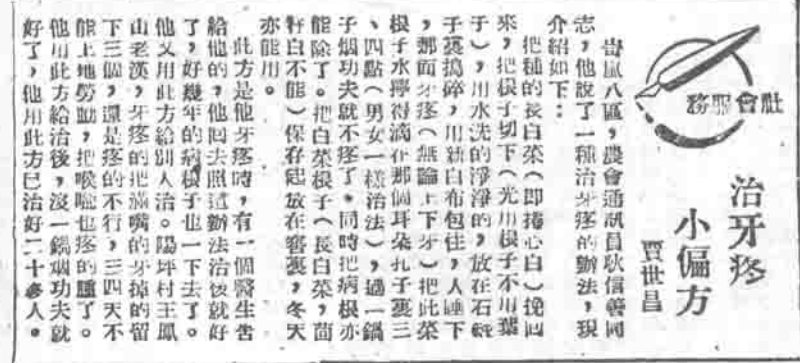 社會服務
治牙疼
小偏方
賈世昌
岢嵐八區,農會通訊員耿信善同
志,他說了一種治牙疼的辦法,現
介紹如下:
把種的長白菜(即捲心白)挽回
來,把根子切下(光用根子不用葉
子),用水洗的淨淨的,放在石鉢
子裏搗碎,用新白布包住,人睡下
,那面牙疼(無論上下牙)把此菜
根子水擰得滴在那個耳朵孔子裏三
、四點(男女一樣治法),過一鍋
子烟功夫就不疼了。同時把病根亦
能除了。把白菜根子(長白菜,茴
籽白不能)保存起放在窖裏,冬天
亦能用。
此方是他牙疼時,有一個醫生告
給他的,他回去照這辦法治後就好
了,好幾年的病根子也一下去了。
他又用此方給別人治。陽坪村王鳳
山老漢,牙疼的把滿嘴的牙掉的留
下三個,還是疼的不行,三四天不
能上地勞動,把喉嚨也疼的腫了。
他用此方給治後,沒一鍋烟功夫就
好了,他用此方已治好二十多人。